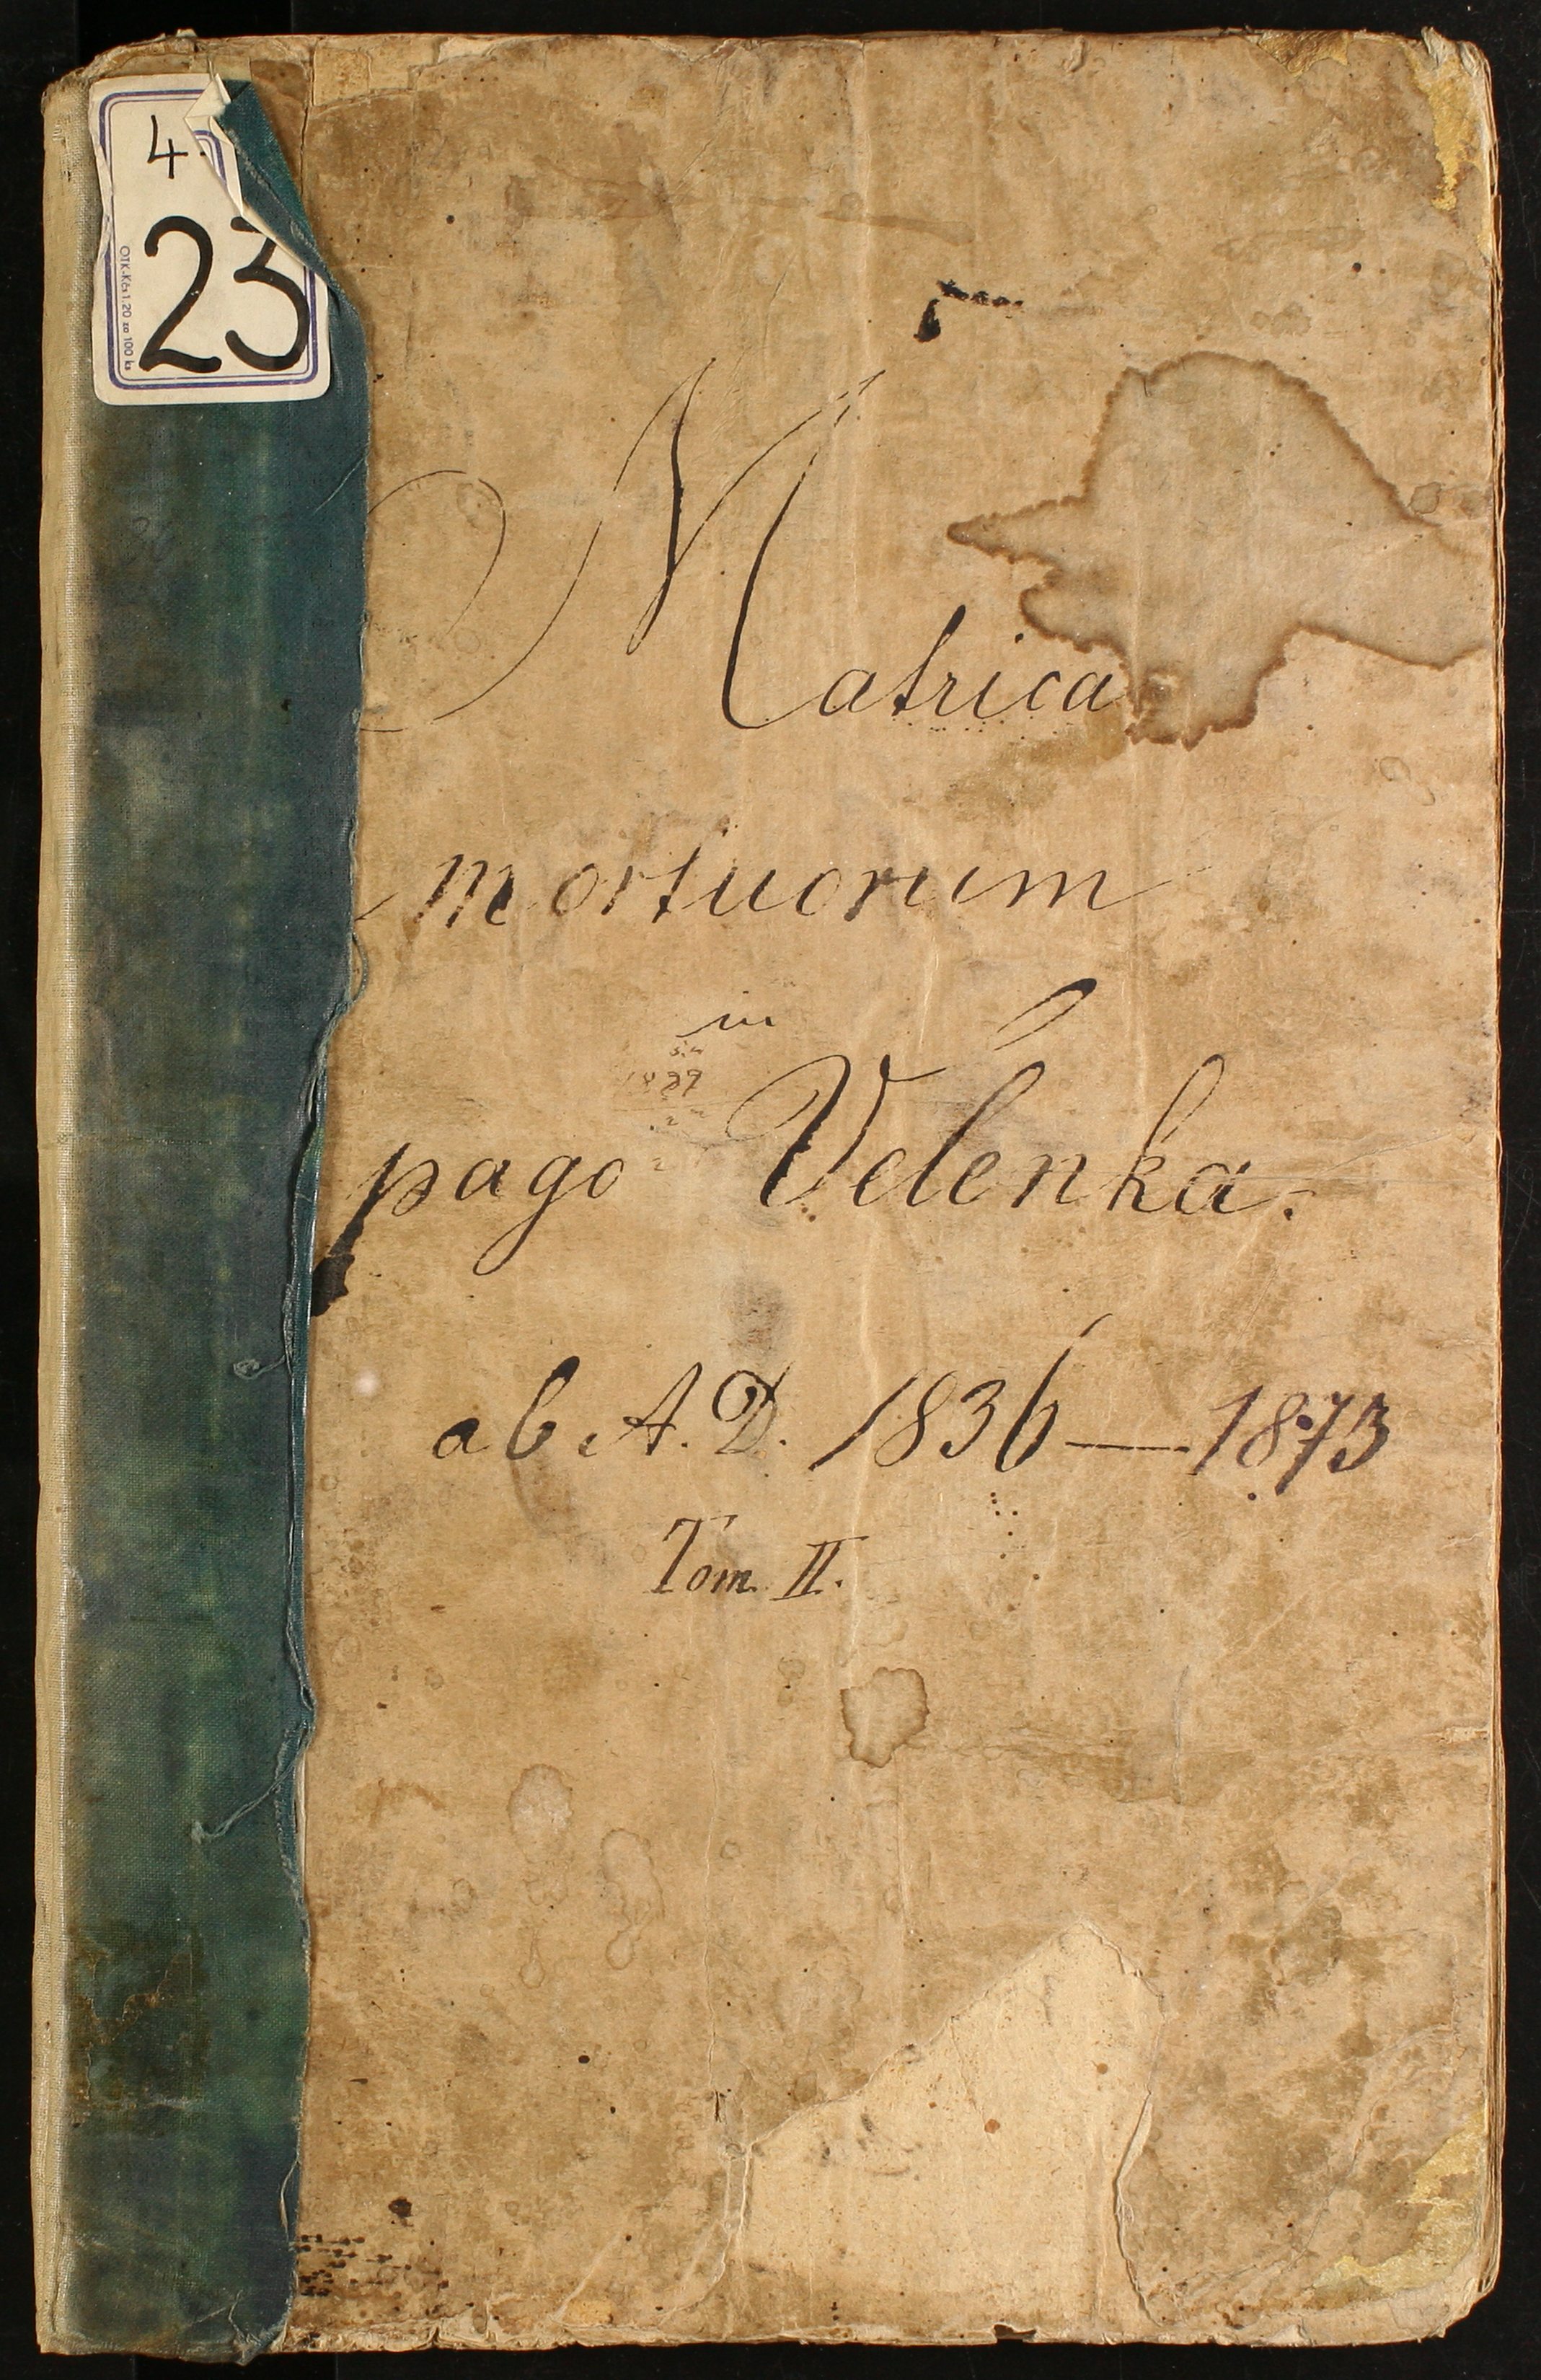 4.
23
OTK-Kčs 1.20 za 100 ks
Matrica
mortuorum
in
pago Velenka.
ab A. D. 1836 — 1873
Tom. II.